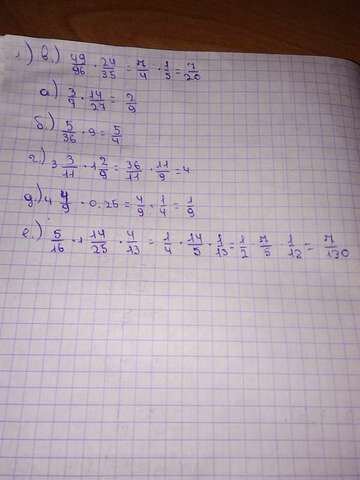 1.) в.) 49/96 · 24/35 = 7/4 · 1/5 = 7/20
а.) 3/7 · 14/27 = 2/9
б.) 5/36 · 9 = 5/4
г.) 3 3/11 · 1 2/9 = 36/11 · 11/9 = 4
д.) 4 4/9 · 0.25 = 4/9 · 1/4 = 1/9
е.) 5/16 · 1 14/25 · 4/13 = 1/4 · 14/5 · 1/13 = 1/2 · 7/5 · 1/12 = 7/130